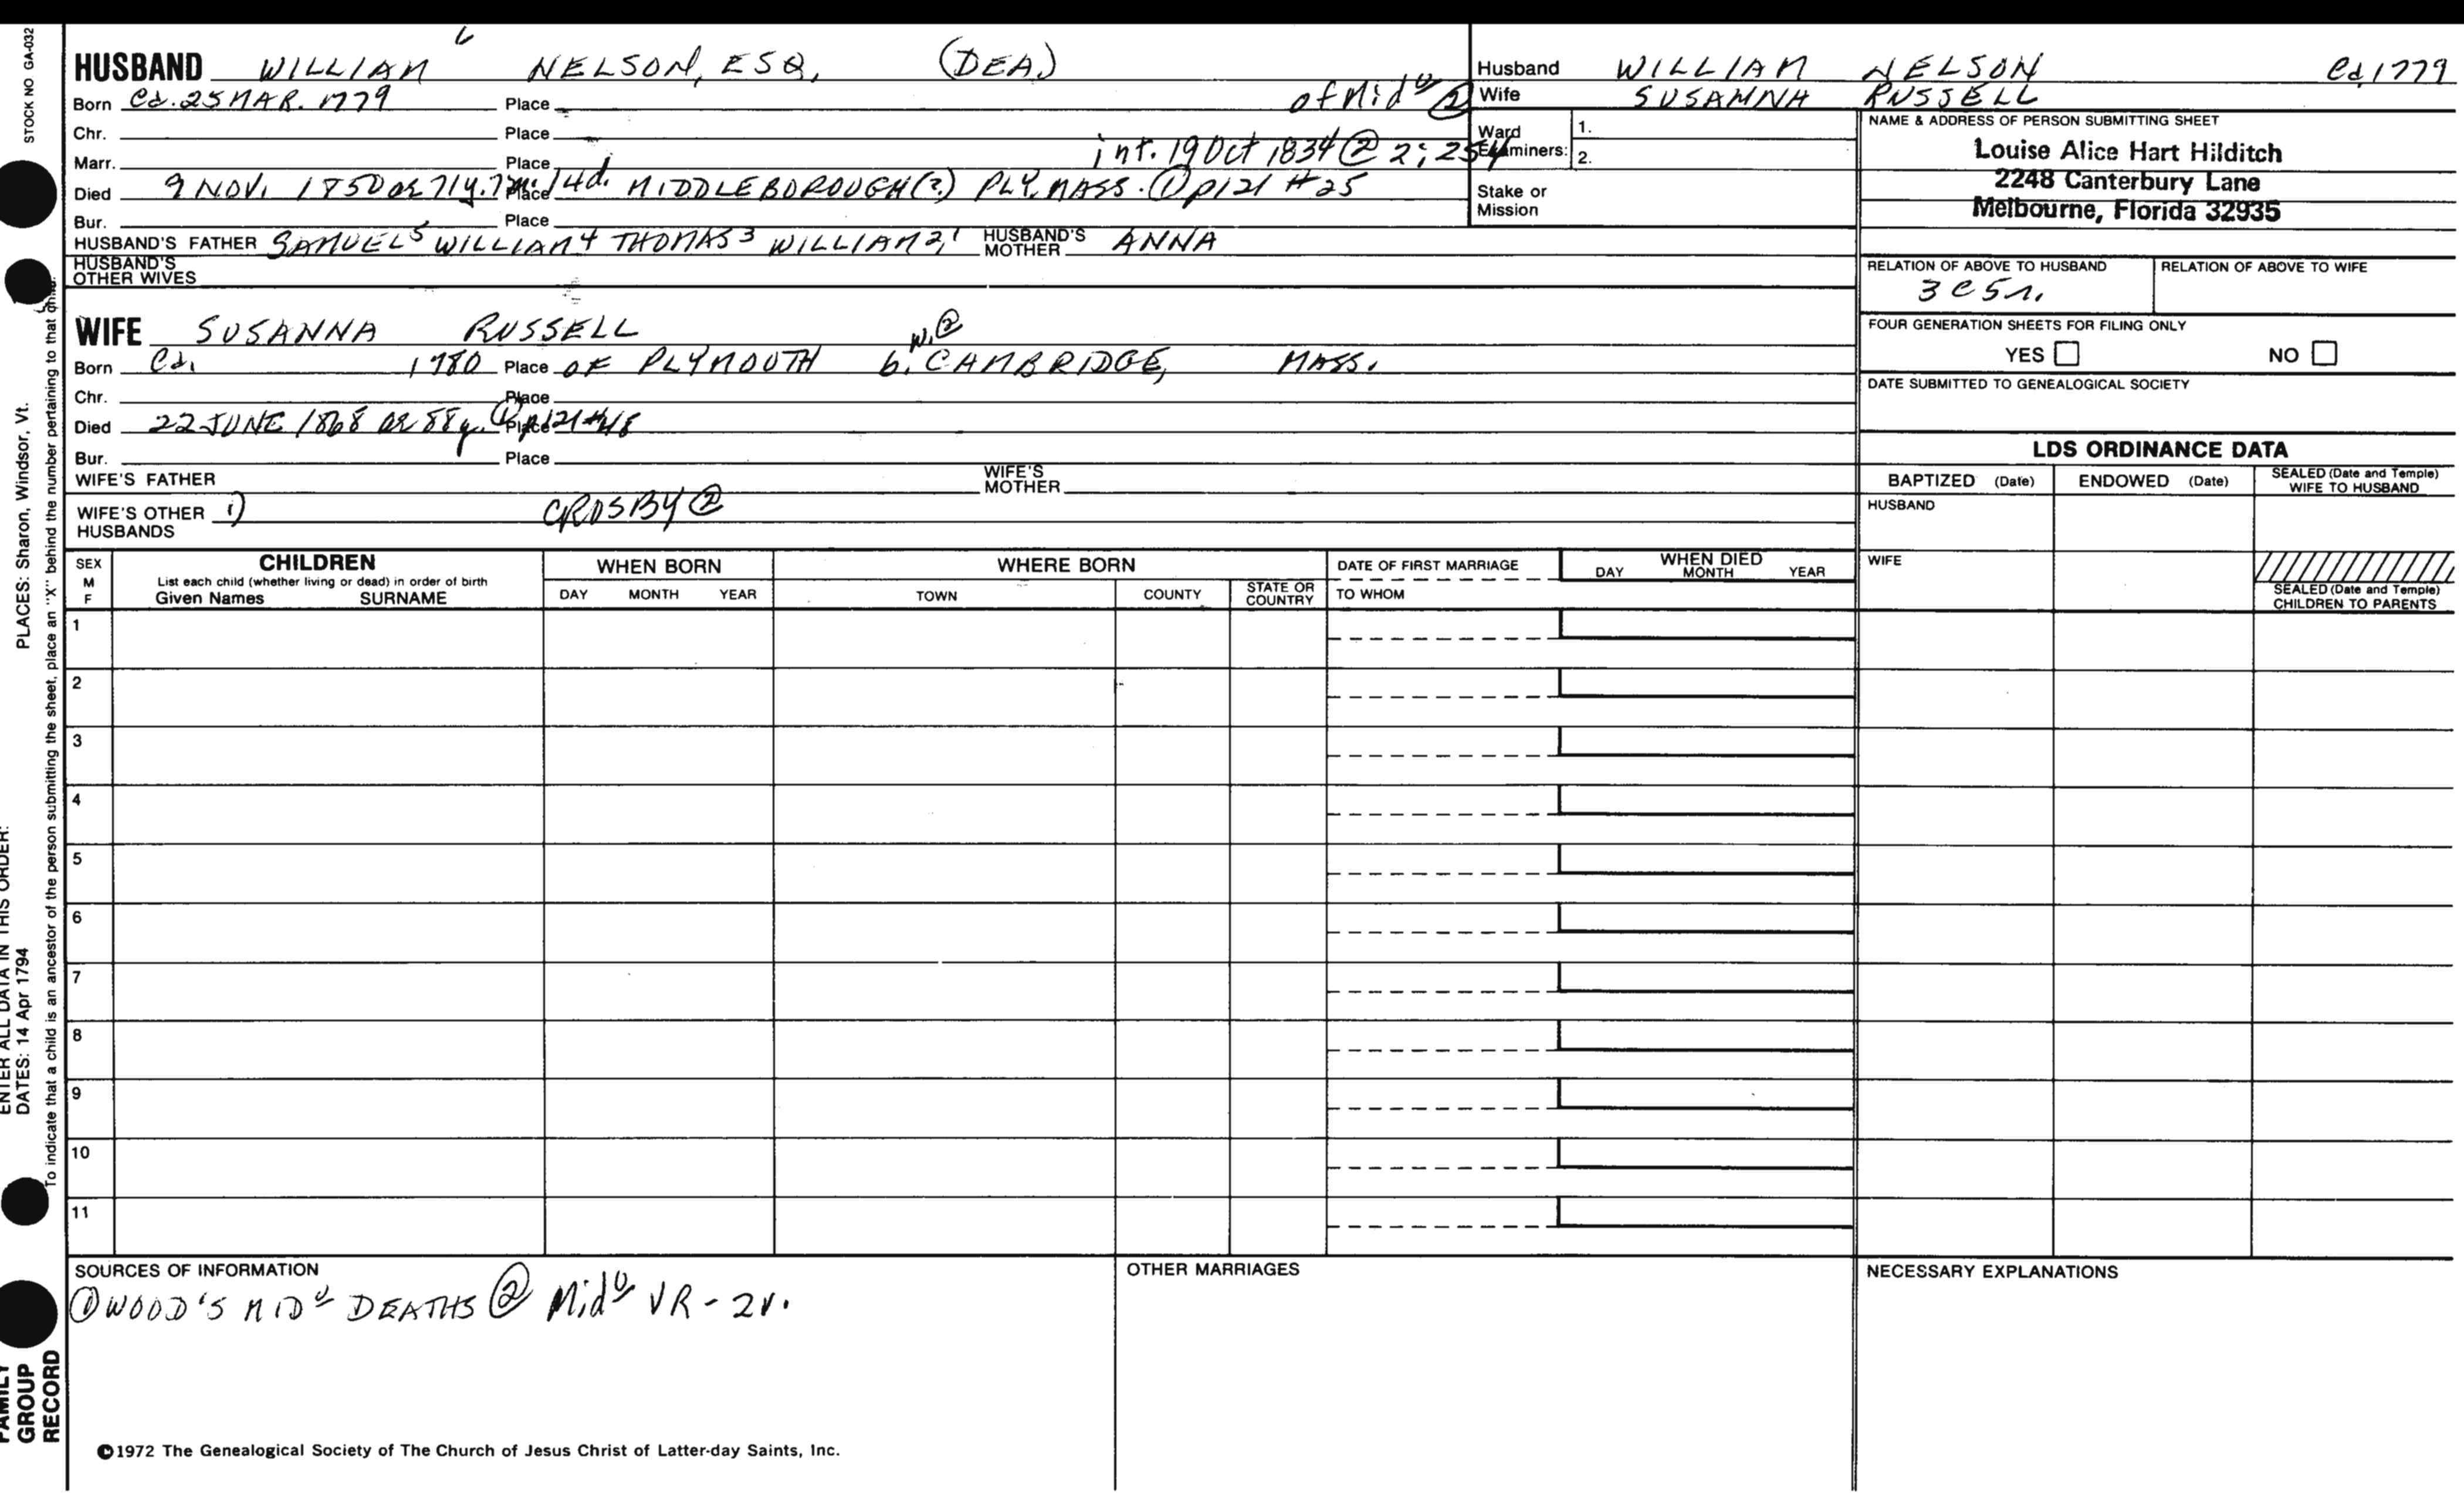 STOCK NO GA-032
PLACES: Sharon, Windsor, Vt.
ENTER ALL DATA IN THIS ORDER:
DATES: 14 Apr 1794
To indicate that a child is an ancestor of the person submitting the sheet, place an "X" behind the number pertaining to that child.
FAMILY GROUP RECORD
HUSBAND WILLIAM 6 NELSON, ESQ. (DEA.)
Born Ca. 25 MAR. 1779 Place of Mid° ②
Chr. Place
Marr. Place int. 19 Oct 1834 @ 2:254
Died 9 NOV. 1850 ae 71y. 7m. 14d. Place MIDDLEBOROUGH(?) PLY. MASS. ① p121 #25
Bur. Place
HUSBAND'S FATHER SAMUEL5 WILLIAM4 THOMAS3 WILLIAM2,1 HUSBAND'S MOTHER ANNA
HUSBAND'S OTHER WIVES
WIFE SUSANNA RUSSELL
w. ②
Born Ca. 1780 Place OF PLYMOUTH b. CAMBRIDGE, MASS.
Chr. Place
Died 22 JUNE 1868 ae 88y. ① Place p121 #48
Bur. Place
WIFE'S FATHER WIFE'S MOTHER
WIFE'S OTHER HUSBANDS 1) CROSBY ②
Husband WILLIAM NELSON Ca 1779
Wife SUSANNA RUSSELL
Ward Examiners: 1.
2.
Stake or Mission
NAME & ADDRESS OF PERSON SUBMITTING SHEET
Louise Alice Hart Hilditch
2248 Canterbury Lane
Melbourne, Florida 32935
RELATION OF ABOVE TO HUSBAND RELATION OF ABOVE TO WIFE
3C5r.
FOUR GENERATION SHEETS FOR FILING ONLY
YES NO
DATE SUBMITTED TO GENEALOGICAL SOCIETY
LDS ORDINANCE DATA
BAPTIZED (Date) ENDOWED (Date) SEALED (Date and Temple) WIFE TO HUSBAND
HUSBAND
WIFE
SEALED (Date and Temple) CHILDREN TO PARENTS
SEX M F
CHILDREN
List each child (whether living or dead) in order of birth
Given Names SURNAME
WHEN BORN
DAY MONTH YEAR
WHERE BORN
TOWN COUNTY STATE OR COUNTRY
DATE OF FIRST MARRIAGE
TO WHOM
WHEN DIED
DAY MONTH YEAR
1
2
3
4
5
6
7
8
9
10
11
SOURCES OF INFORMATION
① WOOD'S MID° DEATHS ② Mid° VR - 2v.
OTHER MARRIAGES
NECESSARY EXPLANATIONS
©1972 The Genealogical Society of The Church of Jesus Christ of Latter-day Saints, Inc.